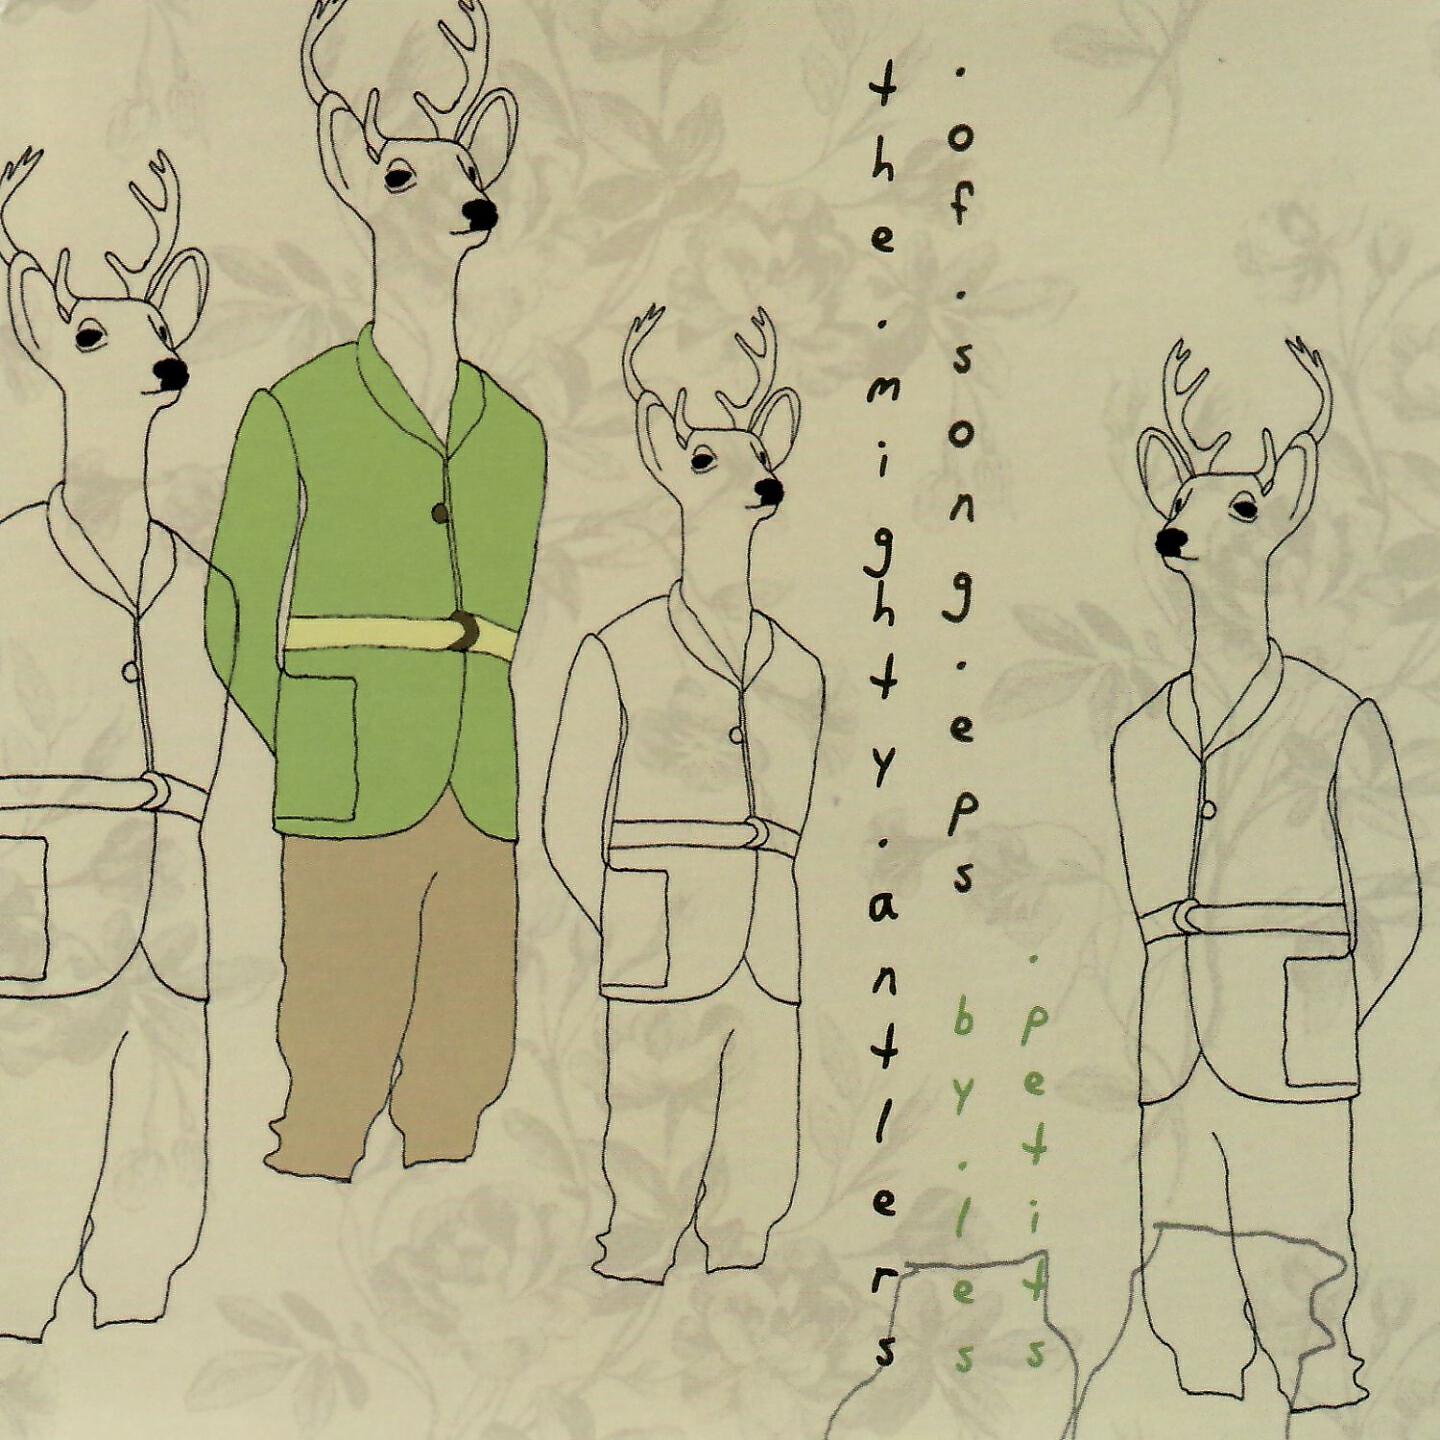 the.mighty.antlers
.of.song.eps
by.les
.petits